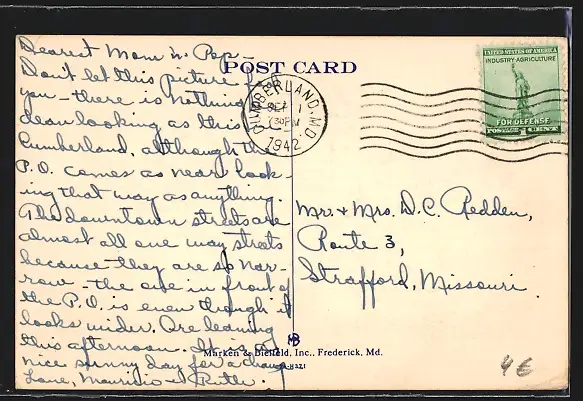 Dearest Mom n' Pep -
POST CARD
Don't let this picture f
you - there is nothing
clean looking as this i
Cumberland, although the
P.O. comes as near look-
ing that way as anything.
The downtown streets are
almost all one way streets
because they are so nar-
row - the one in front of
the P.O. is even though it
looks wider. Are leaving
this afternoon. It is a
nice sunny day for a change
Love, Mauricio & Ruth.
CUMBERLAND, MD.
1
730PM
1942
UNITED STATES OF AMERICA
INDUSTRY-AGRICULTURE
FOR DEFENSE
POSTAGE 1 CENT
Mr. + Mrs. D.C. Redden,
Route 3,
Strafford, Missouri.
MB
Marken & Bielfeld, Inc., Frederick, Md.
4E